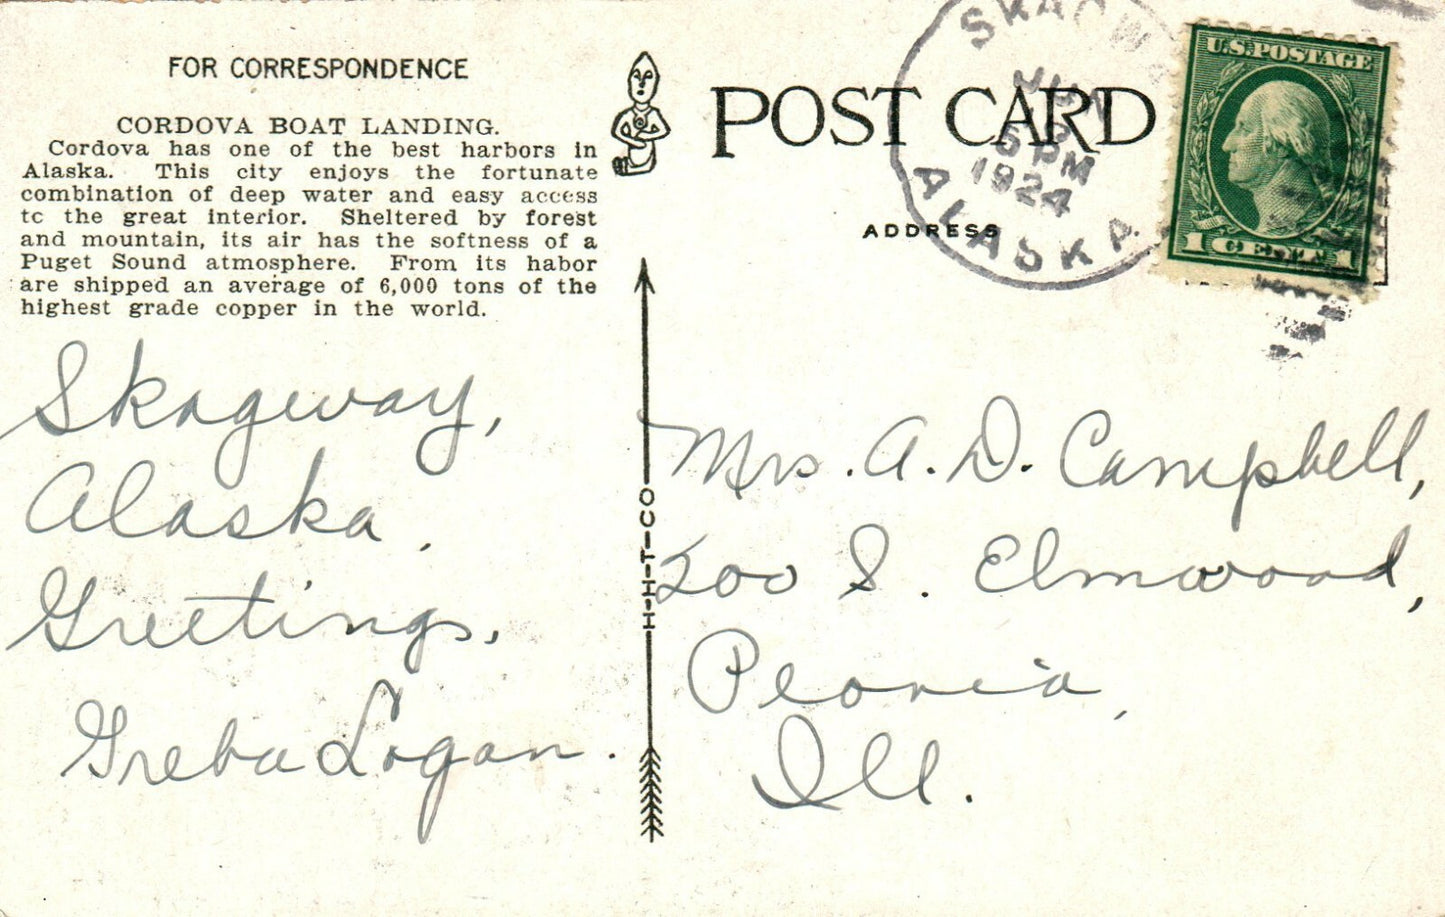 FOR CORRESPONDENCE
CORDOVA BOAT LANDING.
Cordova has one of the best harbors in
Alaska. This city enjoys the fortunate
combination of deep water and easy access
tc the great interior. Sheltered by forest
and mountain, its air has the softness of a
Puget Sound atmosphere. From its habor
are shipped an average of 6,000 tons of the
highest grade copper in the world.
Skagway,
Alaska.
Greetings.
Greba Logan.
H-H-T-CO
POST CARD
ADDRESS
SKAGW
JUN
5 PM
1924
ALASKA
U.S.POSTAGE
1 CENT 1
Mrs. A. D. Campbell,
200 S. Elmwood,
Peoria,
Ill.